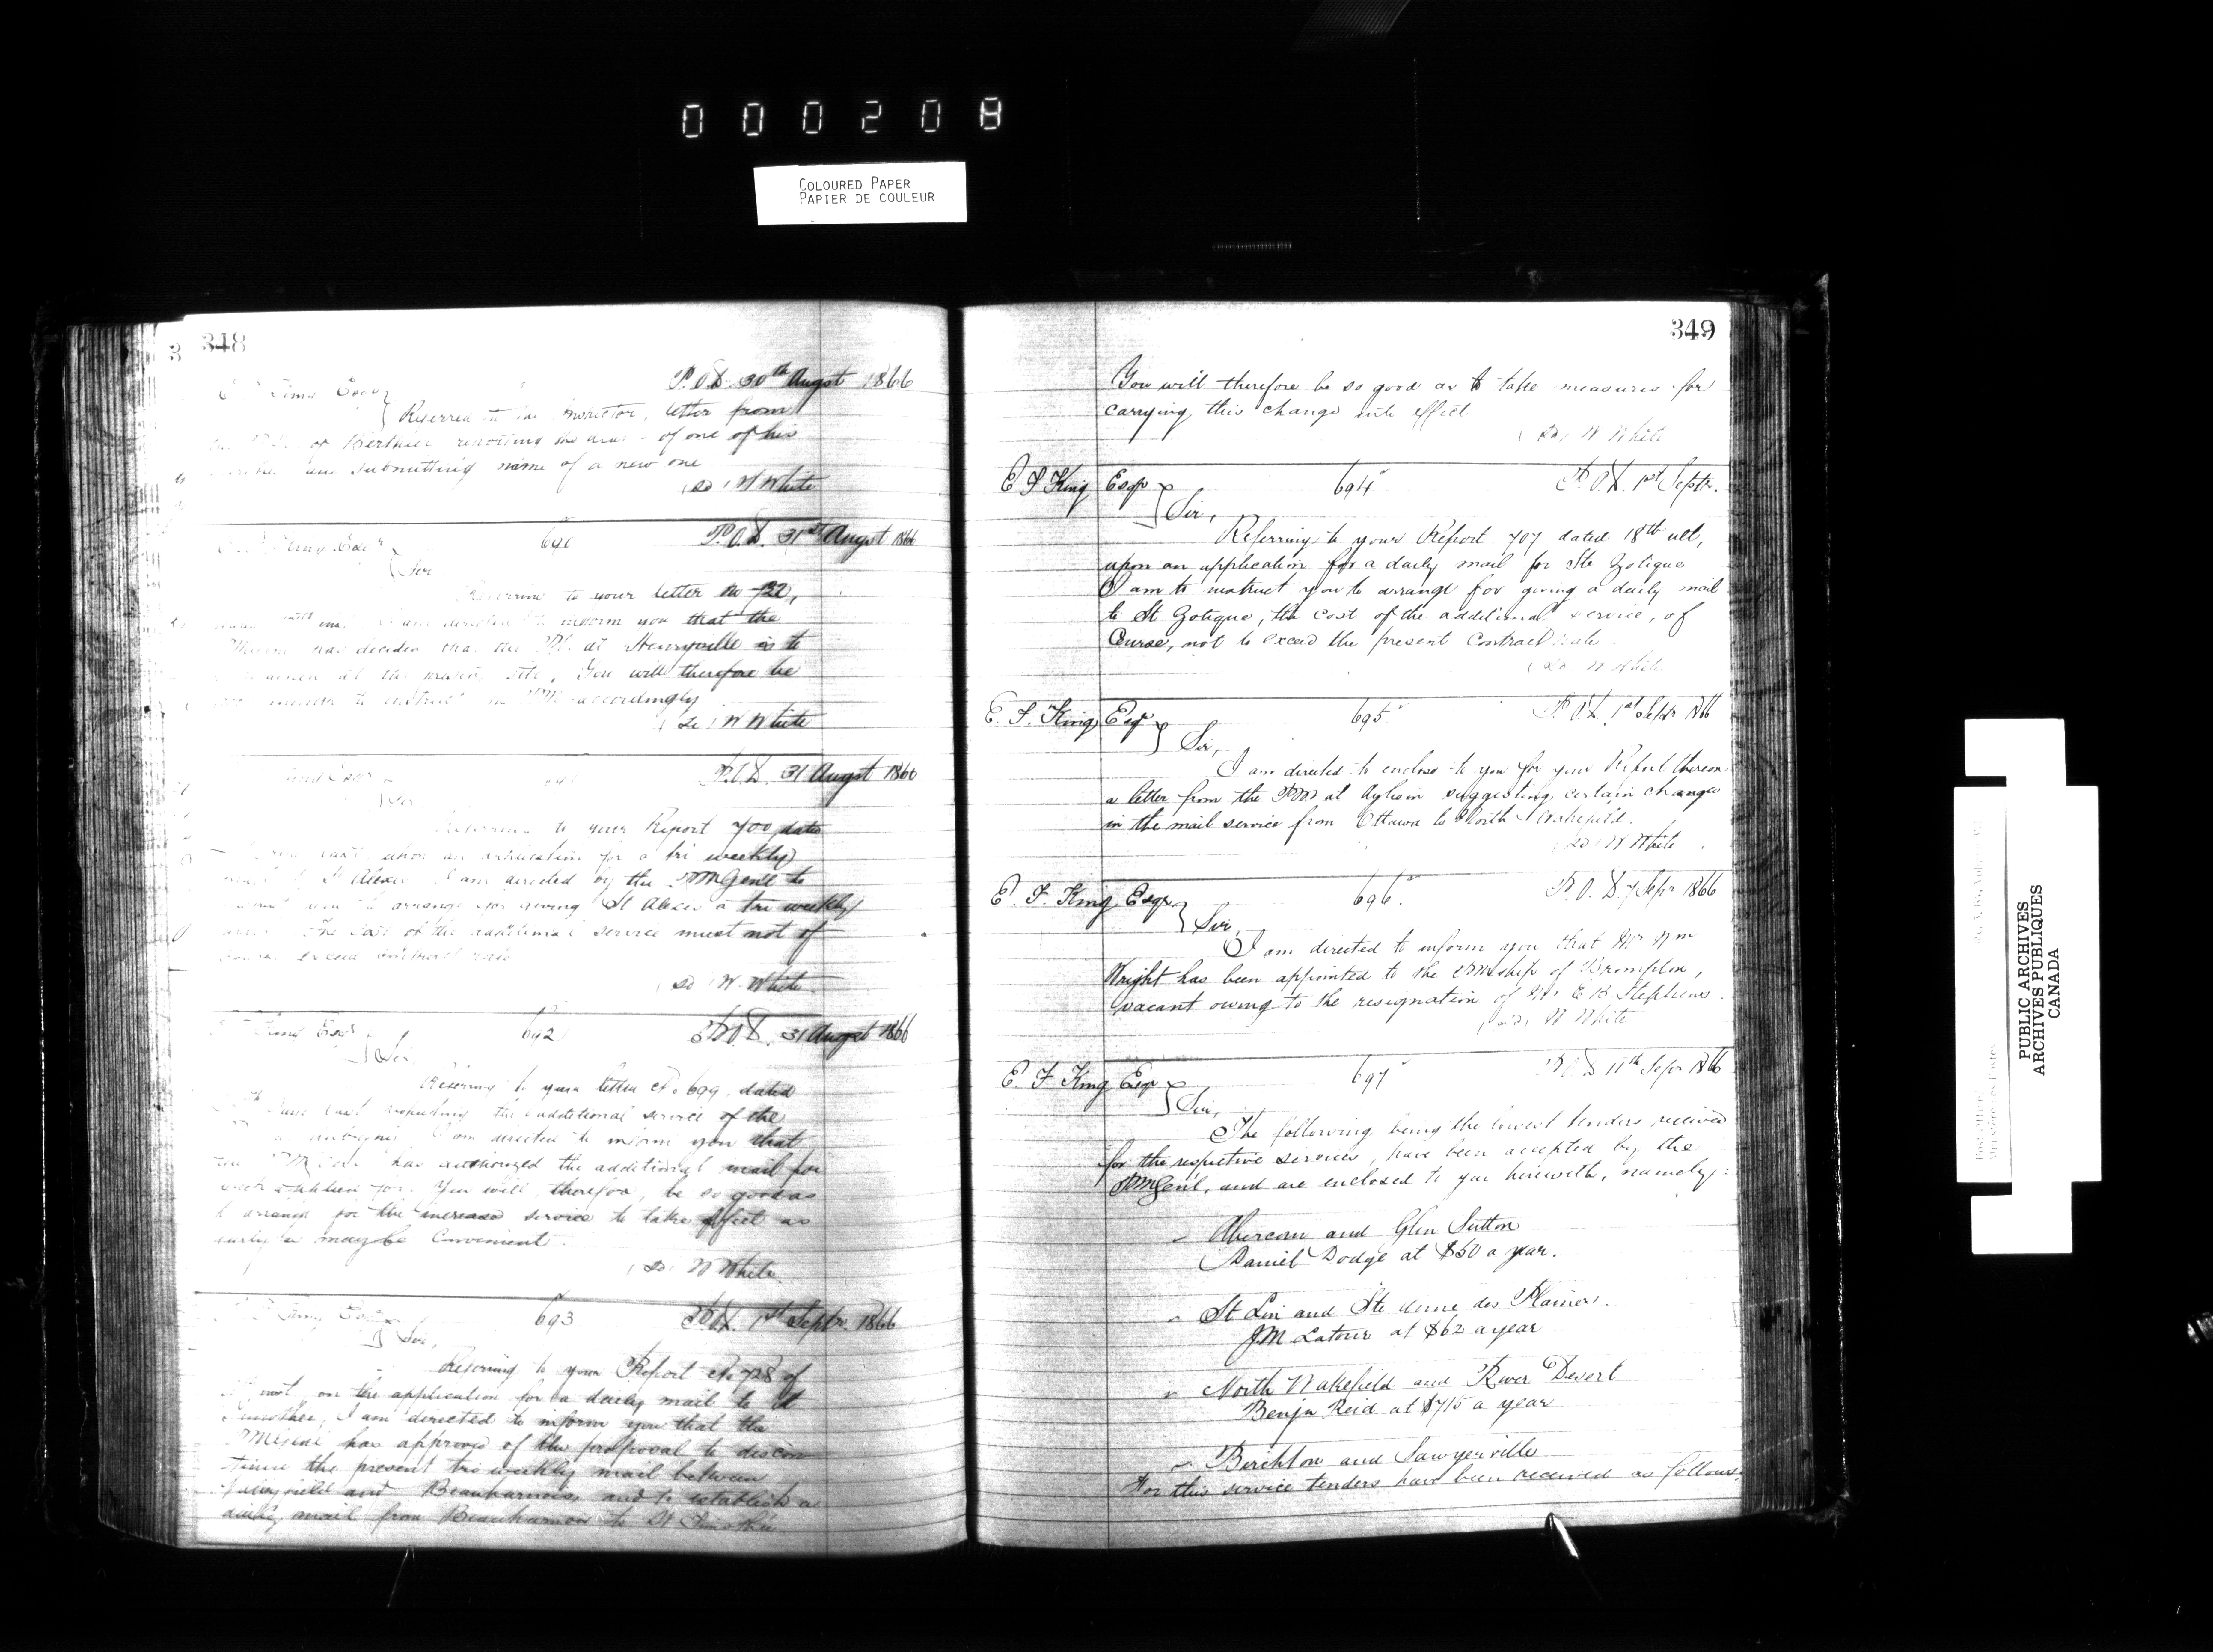 000208
COLOURED PAPER
PAPIER DE COULEUR
348
P.O.D. 30th Augst 1866
Referred to the Inspector, letter from
Berthier reporting the of one of his
and submitting name of a new one
(sd) W White
690 P.O.D. 31st Augst 1866
Sir
Referring to your letter No 732,
I am directed to inform you that the
has decided that the P.O. at Henryville is to
at the present site. You will therefore be
to instruct the PM accordingly
(sd) W White
P.O.D. 31 Augst 1866
Referring to your Report 700 dated
last, upon an application for a tri weekly
St Alexis I am directed by the PMGenl to
you to arrange for giving St Alexis a tri weekly
The cost of the additional service must not of
exceed contract rate.
(sd) W. White
692 P.O.D. 31 Augst 1866
Sir,
Referring to your letter No. 699, dated
June last the additional service of the
I am directed to inform you that
the has authorized the additional mail per
week applied for. You will, therefore, be so good as
to arrange for the increased service to take effect as
early as may be convenient.
(sd) W White.
693 P.O.D. 1st Septr. 1866
Sir,
Referring to your Report No 728 of
inst, on the application for a daily mail to St
Timothee, I am directed to inform you that the
PMGenl has approved of the proposal to discon
tinue the present tri weekly mail between
and Beauharnois, and to establish a
daily mail from Beauharnois to St Timothee
349
You will therefore be so good as to take measures for
carrying this change into effect.
(sd) W White
E F King Esqr 694 P.O.D. 1st Septr.
Sir,
Referring to your Report 707 dated 18th ult,
upon an application for a daily mail for Ste Zotique
I am to instruct you to arrange for giving a daily mail
to St Zotique, the cost of the additional service, of
Course, not to exceed the present Contract rate.
(sd) W White
E. F. King Esqr 695 P.O.D. 1st Septr 1866
Sir,
I am directed to enclose to you for your Report thereon
a letter from the PM at Aylwin suggesting certain changes
in the mail service from Ottawa to North Wakefield.
(sd) W White
E. F. King Esqr 696 P.O.D. 7 Sepr 1866
Sir,
I am directed to inform you that Mr Wm
Wright has been appointed to the PMship of Brompton,
vacant owing to the resignation of Mr E B Stephens.
(sd) W White
E. F King Esqr 697 P.O.D 11th Sepr 1866
Sir,
The following being the lowest tenders received
for the respective services, have been accepted by the
PMGenl, and are enclosed to you herewith, namely:
Abercorn and Glen Sutton
Daniel Dodge at $50 a year.
St Lin and Ste Anne des Plaines.
J.M Latour at $62 a year
North Wakefield and River Desert
Benjn Reid at $715 a year
Birchton and Sawyerville
For this service tenders have been received as follows:
PUBLIC ARCHIVES
ARCHIVES PUBLIQUES
CANADA